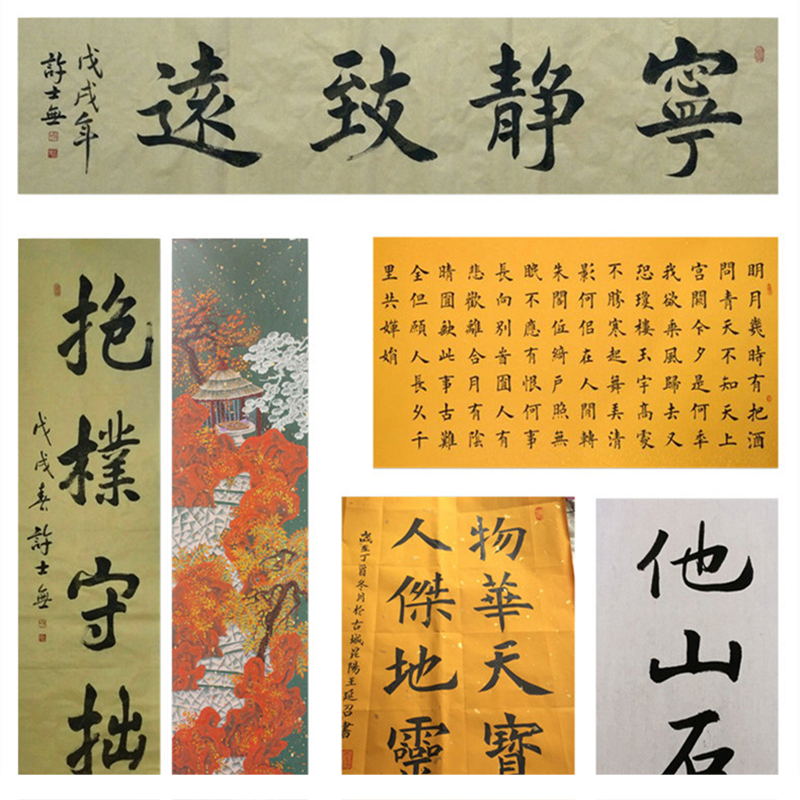 寧静致遠
戊戌年
許士無
抱樸守拙
戊戌春許士無
明月幾時有把酒
問青天不知天上
宮闕今夕是何年
我欲乘風歸去又
恐瓊樓玉宇高處
不勝寒起舞弄清
影何佀在人間轉
朱閣低綺戶照無
眠不應有恨何事
長向別旹圓人有
悲歡離合月有陰
晴圓缺此事古難
全但願人長久千
里共嬋娟
物華天寶
人傑地靈
歲在丁酉冬月於古城昆陽王延召書
他山石